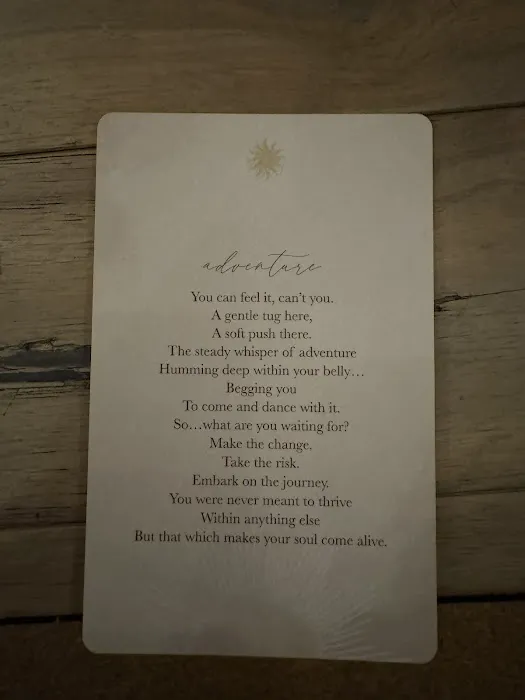 adventure
You can feel it, can't you.
A gentle tug here,
A soft push there.
The steady whisper of adventure
Humming deep within your belly…
Begging you
To come and dance with it.
So…what are you waiting for?
Make the change.
Take the risk.
Embark on the journey.
You were never meant to thrive
Within anything else
But that which makes your soul come alive.